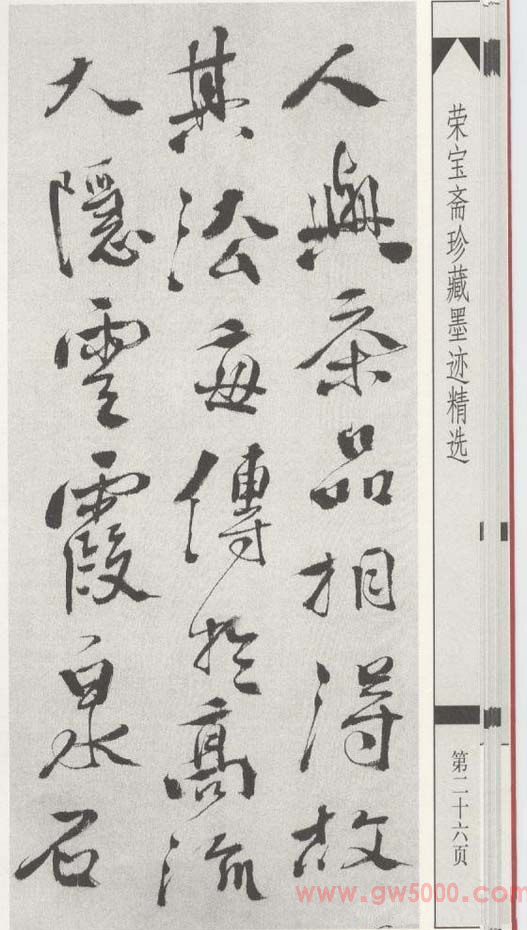 人與茶品相得故
其法每傳於高流
大隱雲霞泉石
荣宝斋珍藏墨迹精选
第二十六页
www.gw5000.com